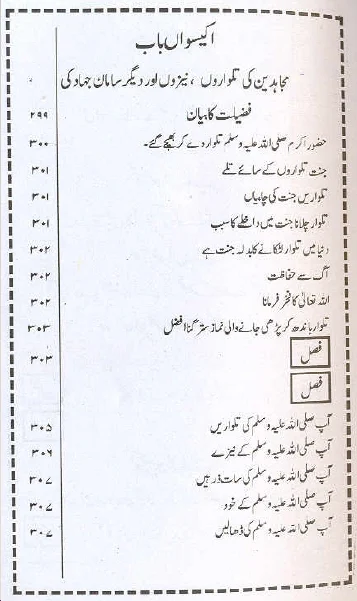 اکیسواں باب
مجاہدین کی تلواروں ، نیزوں اور دیگر سامان جہاد کی
فضیلت کا بیان ۲۹۹
حضور اکرم صلی اللہ علیہ وسلم تلوار دے کر بھیجے گئے۔ ۳۰۰
جنت تلواروں کے سائے تلے ۳۰۱
تلواریں جنت کی چابیاں ۳۰۱
تلوار چلانا جنت میں داخلے کا سبب ۳۰۱
دنیا میں تلوار لٹکانے کا بدلہ جنت ہے ۳۰۲
آگ سے حفاظت ۳۰۲
اللہ تعالیٰ کا فخر فرمانا ۳۰۲
تلوار باندھ کر پڑھی جانے والی نماز ستر گنا افضل ۳۰۳
فصل ۳۰۳
فصل
آپ صلی اللہ علیہ وسلم کی تلواریں ۳۰۵
آپ صلی اللہ علیہ وسلم کے نیزے ۳۰۶
آپ صلی اللہ علیہ وسلم کی سات ذرہیں ۳۰۷
آپ صلی اللہ علیہ وسلم کے خود ۳۰۷
آپ صلی اللہ علیہ وسلم کی ڈھالیں ۳۰۷